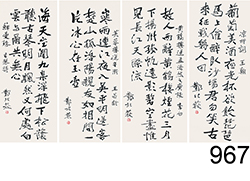 涼州詞 王翰
葡萄美酒夜光杯欲飲琵琶
馬上催醉卧沙場君莫笑古
來征戰幾人回
故人西辭黃鶴樓煙花三
月下揚州孤帆遠影碧空盡唯
見長江天際流
芙蓉樓送辛漸 王昌齡
寒雨連江夜入吳平明送客
楚山孤洛陽親友如相問一
片冰心在玉壺
海天空闊九皋深飛下松陰
聽古琴明月飄然又何處
967